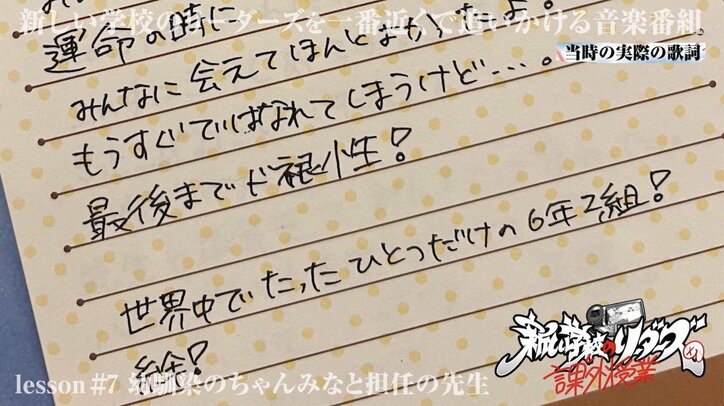 新しい学校のリーダーズを一番近くで追いかける音楽番組
当時の実際の歌詞
運命の時に
みんなに会えてほんとよかったよ。
もうすぐではなれてしまうけど…。
最後までド根小生!
世界中でたったひとつだけの6年2組!
絵!
新しい学校のリーダーズの
課外授業
lesson #7 幼馴染のちゃんみなと担任の先生